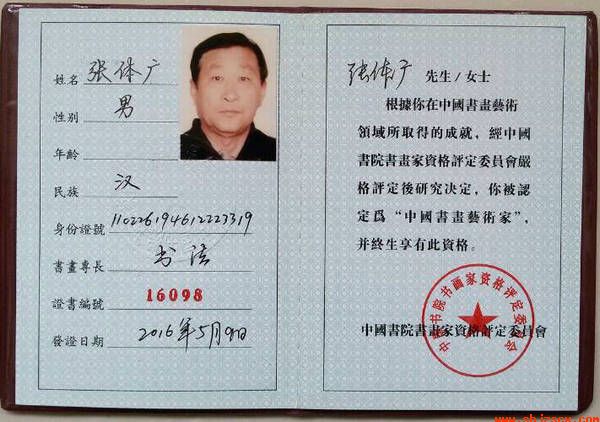 姓名 张体广
性别 男
年齡
民族 汉
身份證號 110226194612223319
書畫專長 书法
證書編號 16098
發證日期 2016年5月9日
张体广 先生/女士
根據你在中國書畫藝術
領域所取得的成就，經中國
書院書畫家資格評定委員會嚴
格評定後研究决定，你被認
定爲“中國書畫藝術家”，
并終生享有此資格。
中国书院书画家资格评定委员会
中國書院書畫家資格評定委員會